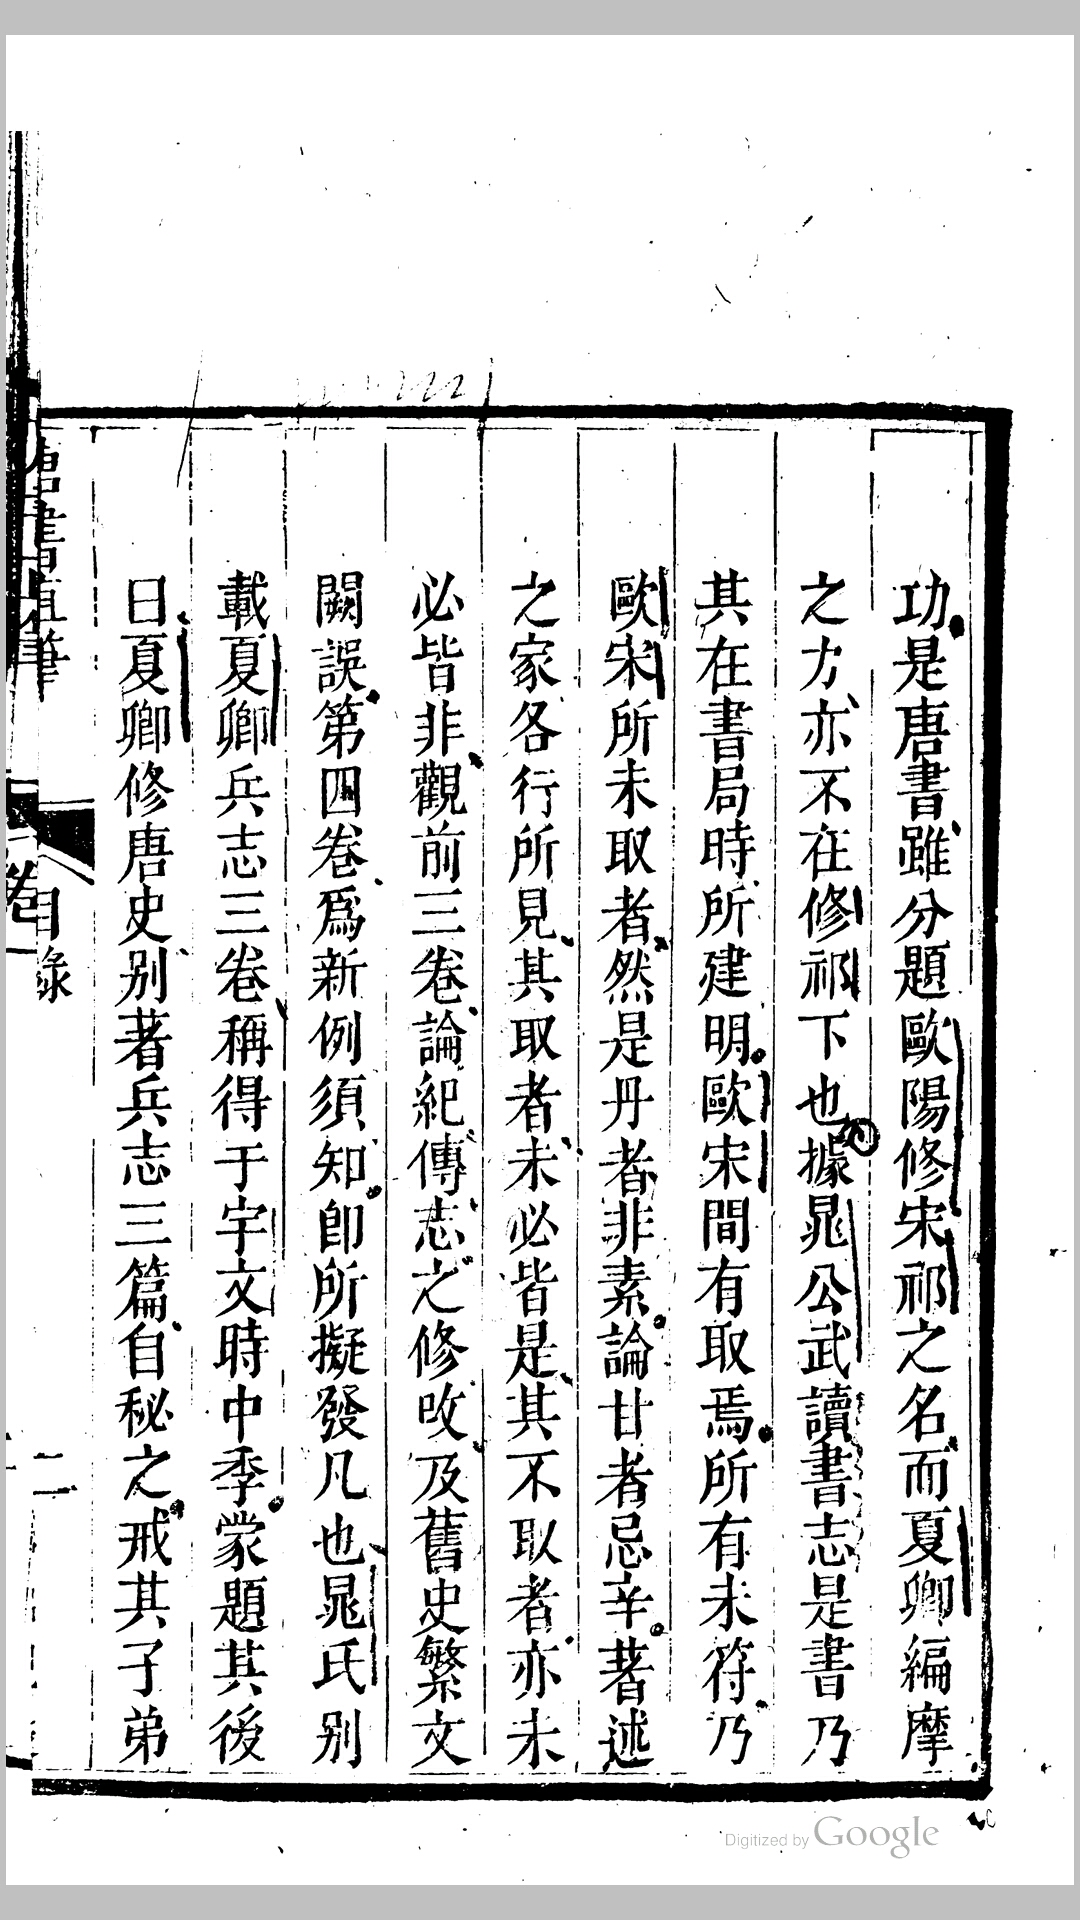 功是唐書雖分題歐陽修宋祁之名而夏卿編摩
之力亦不在修祁下也據晁公武讀書志是書乃
其在書局時所建明歐宋間有取焉所有未符乃
歐宋所未取者然是丹者非素論甘者忌辛著述
之家各行所見其取者未必皆是其不取者亦未
必皆非觀前三卷論紀傳志之修改及舊史繁文
闕誤第四卷爲新例須知卽所擬發凡也晁氏別
載夏卿兵志三卷稱得于宇文時中季蒙題其後
曰夏卿修唐史别著兵志三篇自秘之戒其子弟
唐書直筆
目錄
二
Digitized by Google